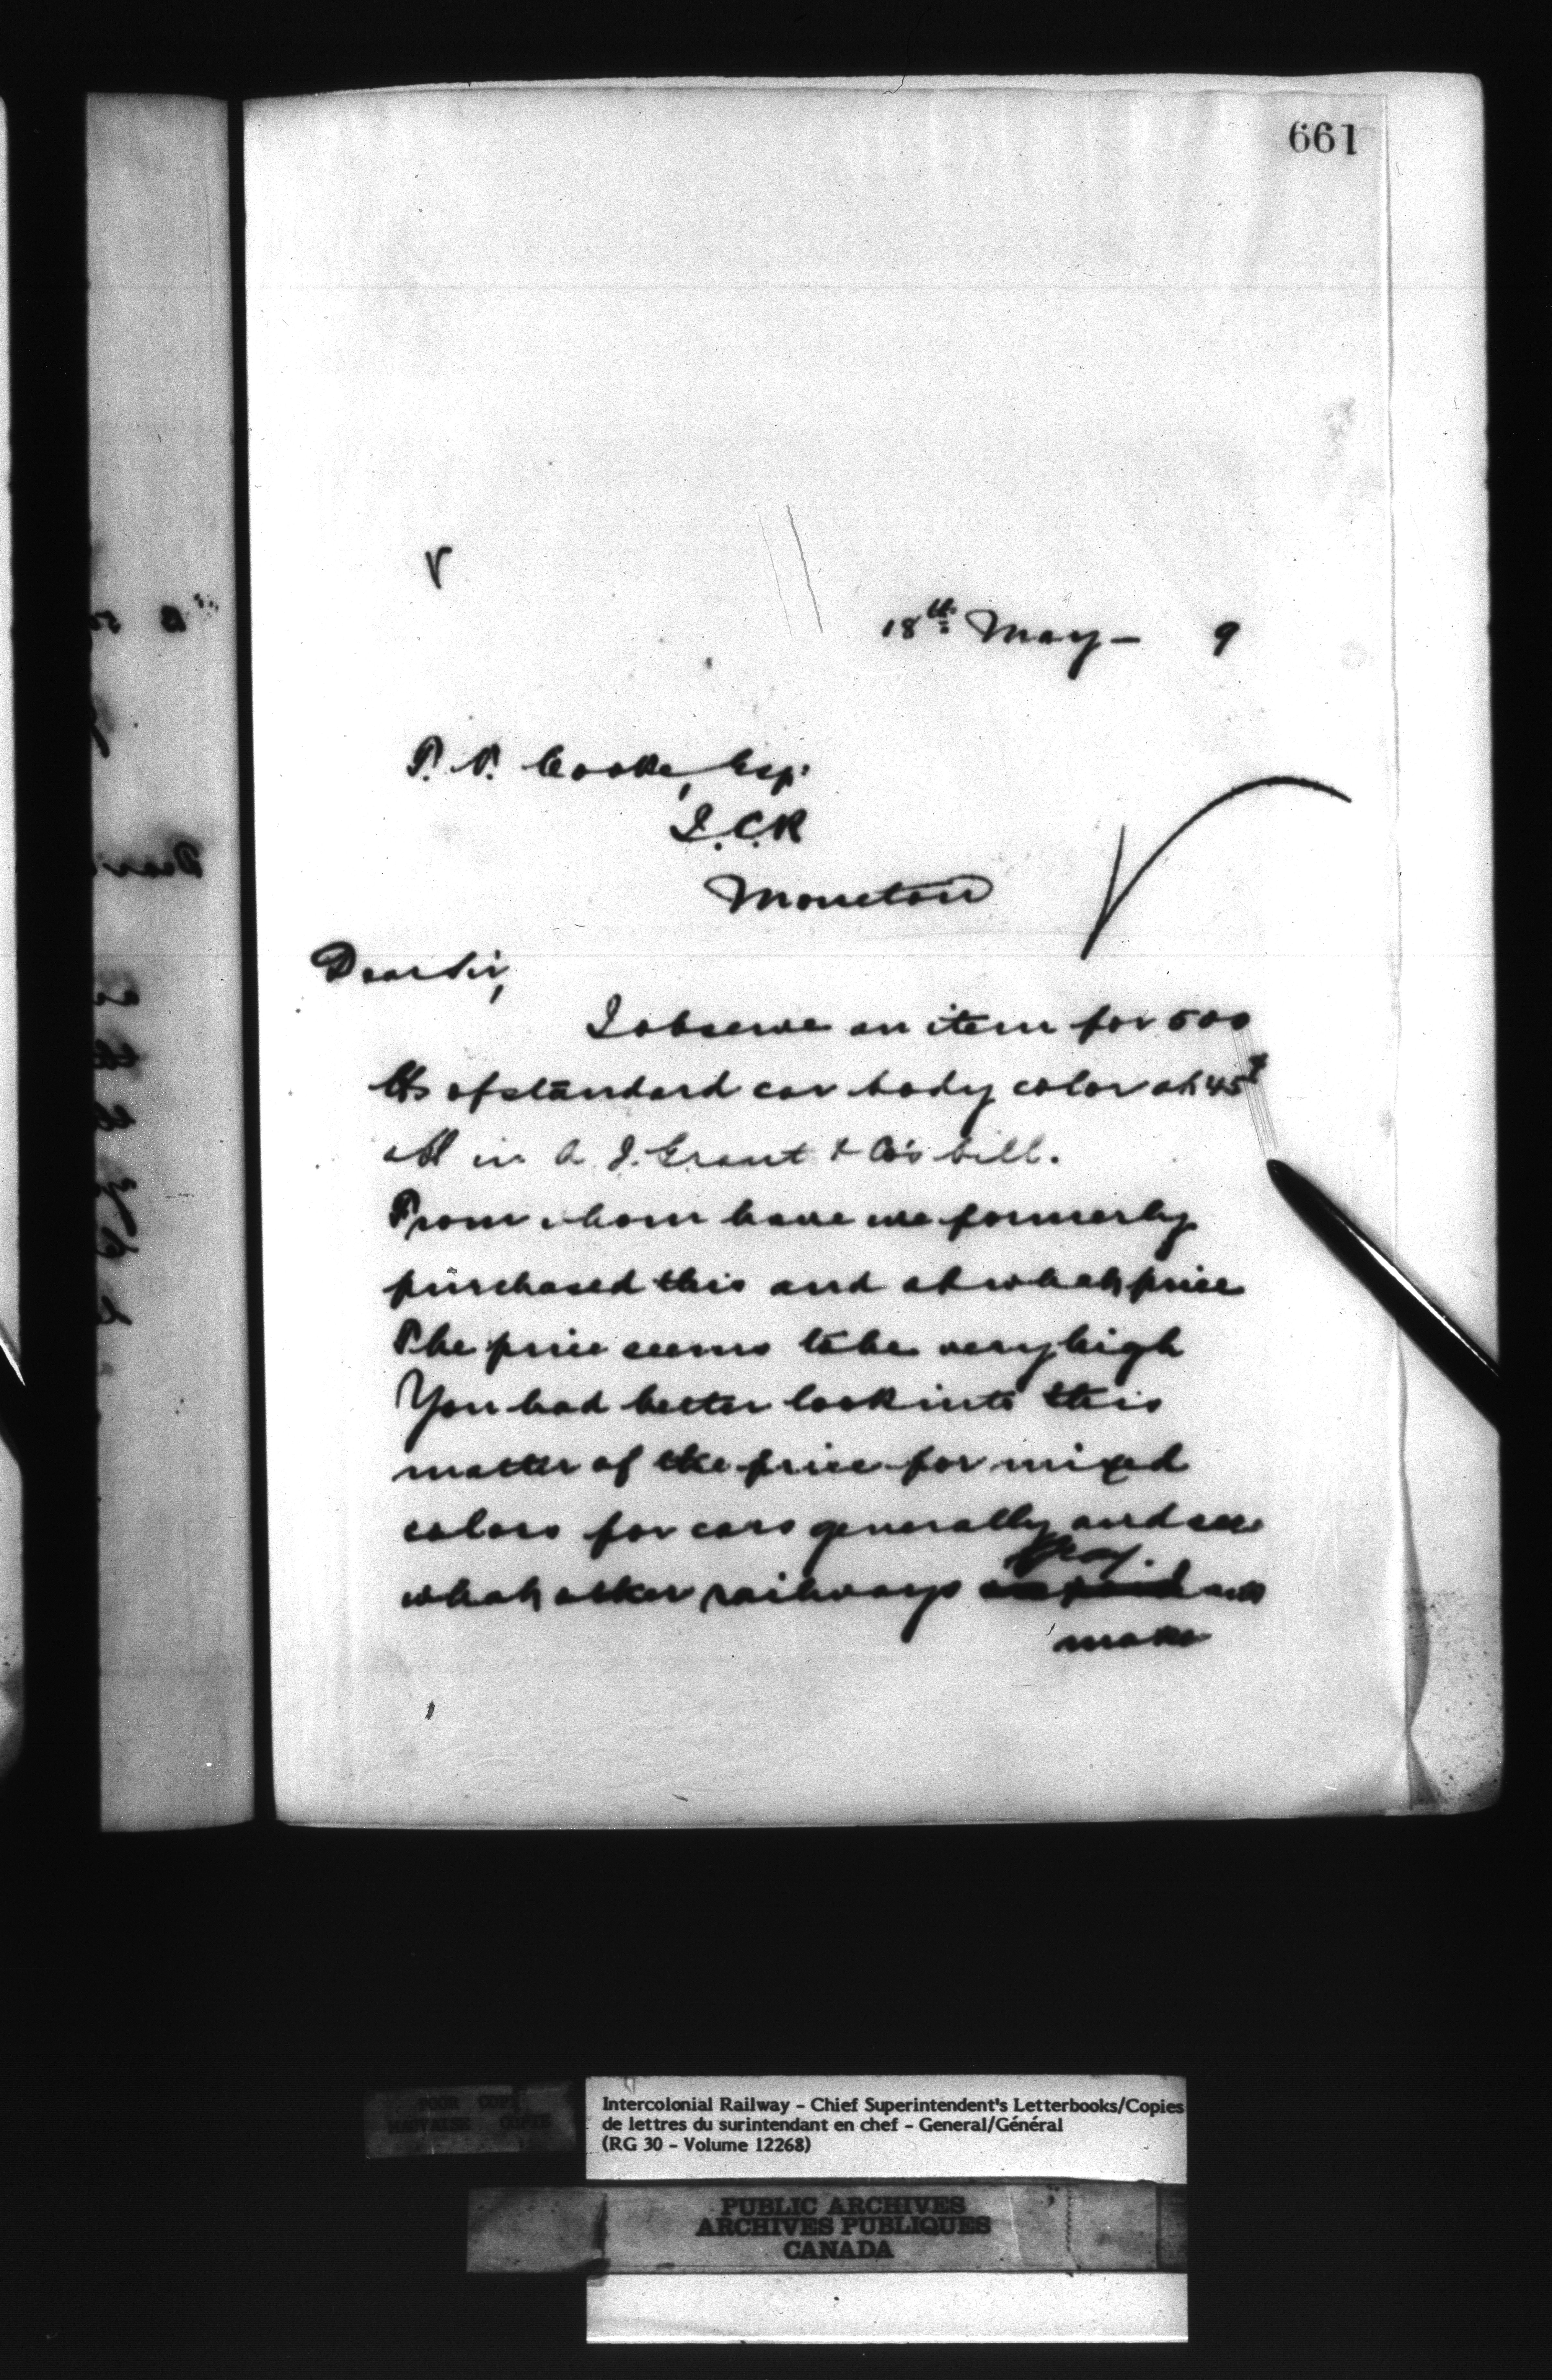 661
18th May – 9
T. V. Cooke, Esq.
I.C.R
Moncton
Dear Sir,
I observe an item for 500
lbs of standard car body color at 45¢
a lb in A. J. Grant & Co's bill.
From whom have we formerly
purchased this and at what price
The price seems to be very high
You had better look into this
matter of the price for mixed
colors for cars generally and see
what other railways pay. and
make
POOR COPY
MAUVAISE COPIE
Intercolonial Railway - Chief Superintendent's Letterbooks/Copies
de lettres du surintendant en chef - General/Général
(RG 30 - Volume 12268)
PUBLIC ARCHIVES
ARCHIVES PUBLIQUES
CANADA